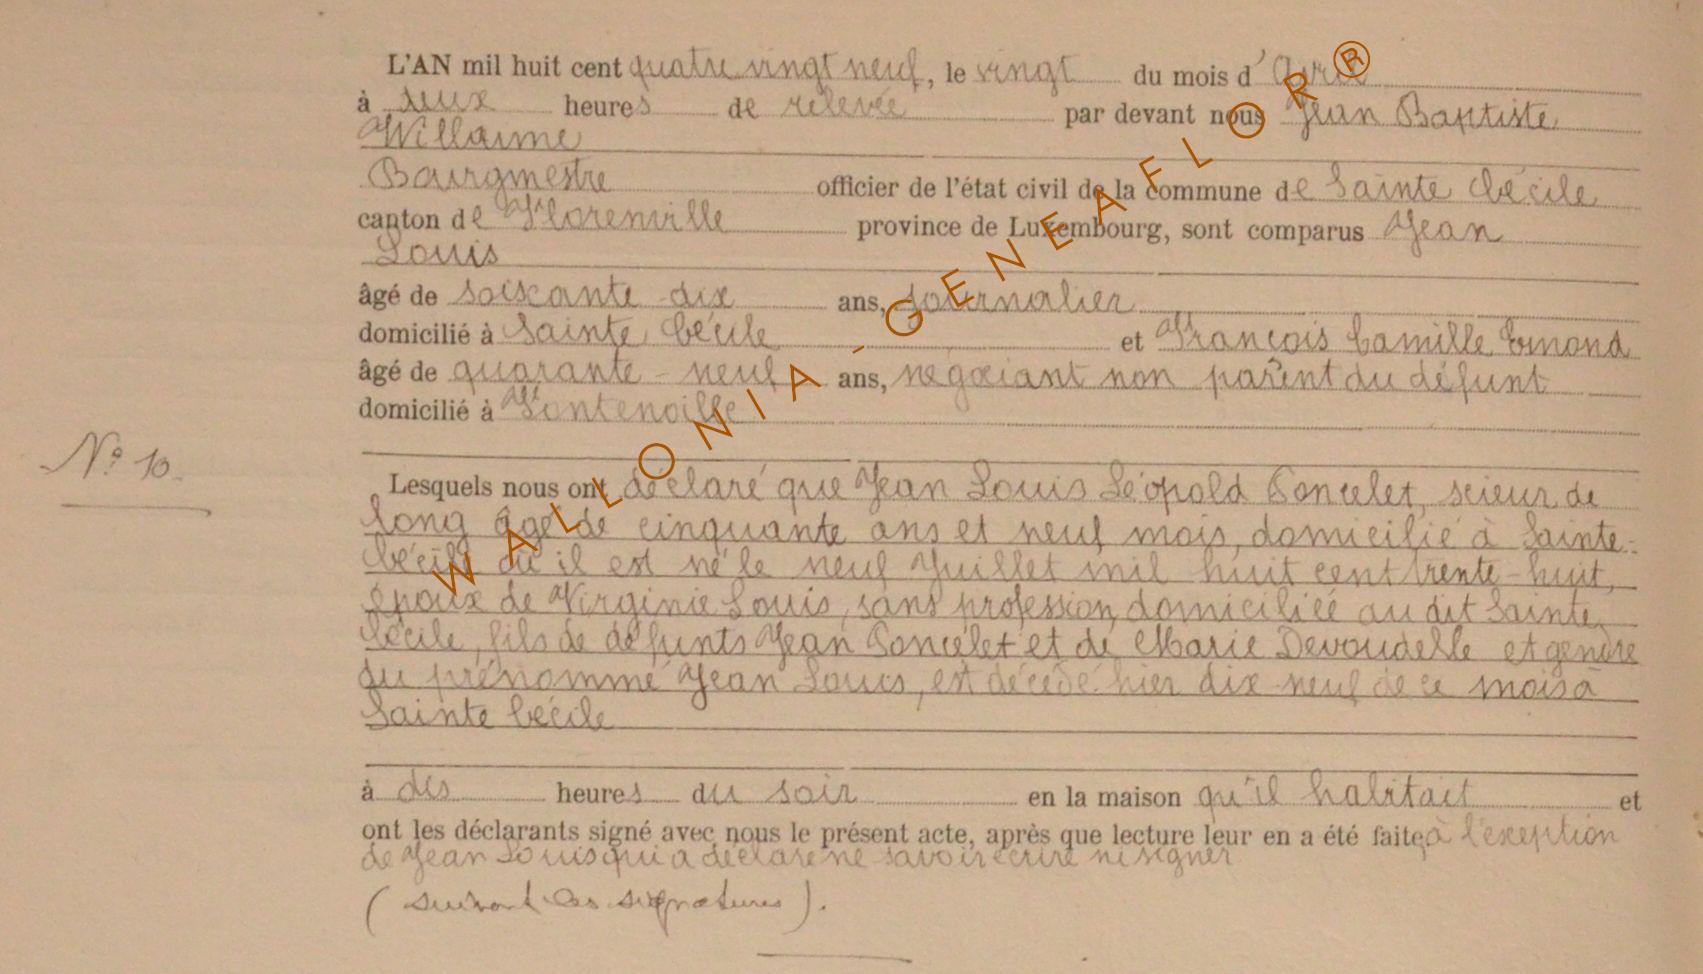 L'AN mil huit cent quatre vingt neuf, le vingt du mois d'Avril
à deux heures de relevée par devant nous Jean Baptiste
Willaime
Bourgmestre officier de l'état civil de la commune de Sainte Cécile
canton de Florenville province de Luxembourg, sont comparus Jean
Louis
âgé de soixante dix ans, journalier
domicilié à Sainte Cécile et François Camille Emond
âgé de quarante-neuf ans, négociant non parent du défunt
domicilié à Fontenoille
N° 10.
Lesquels nous ont déclaré que Jean Louis Léopold Poncelet, scieur de
long âgé de cinquante ans et neuf mois, domicilié à Sainte-
Cécile où il est né le neuf Juillet mil huit cent trente-huit,
époux de Virginie Louis, sans profession, domiciliée au dit Sainte
Cécile, fils de défunts Jean Poncelet et de Marie Devoudelle et gendre
du prénommé Jean Louis, est décédé hier dix-neuf de ce mois à
Sainte Cécile
à dis heures du soir en la maison qu'il habitait et
ont les déclarants signé avec nous le présent acte, après que lecture leur en a été faite, à l'exeption
de Jean Louis qui a déclaré ne savoir écrire ni signer
(suivent les signatures).
WALLONIA-GENEAFLOR®